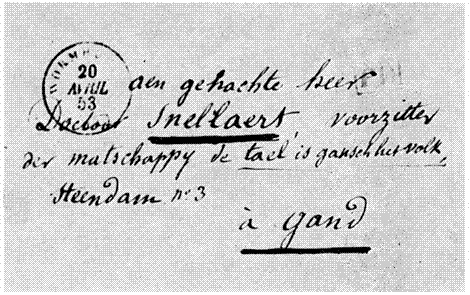 20
AVRIL
53
aen gehachte heer
Doctoor Snellaert, voorzitter
der matschappy de tael is gansch het volk,
Steendam no 3
à Gand